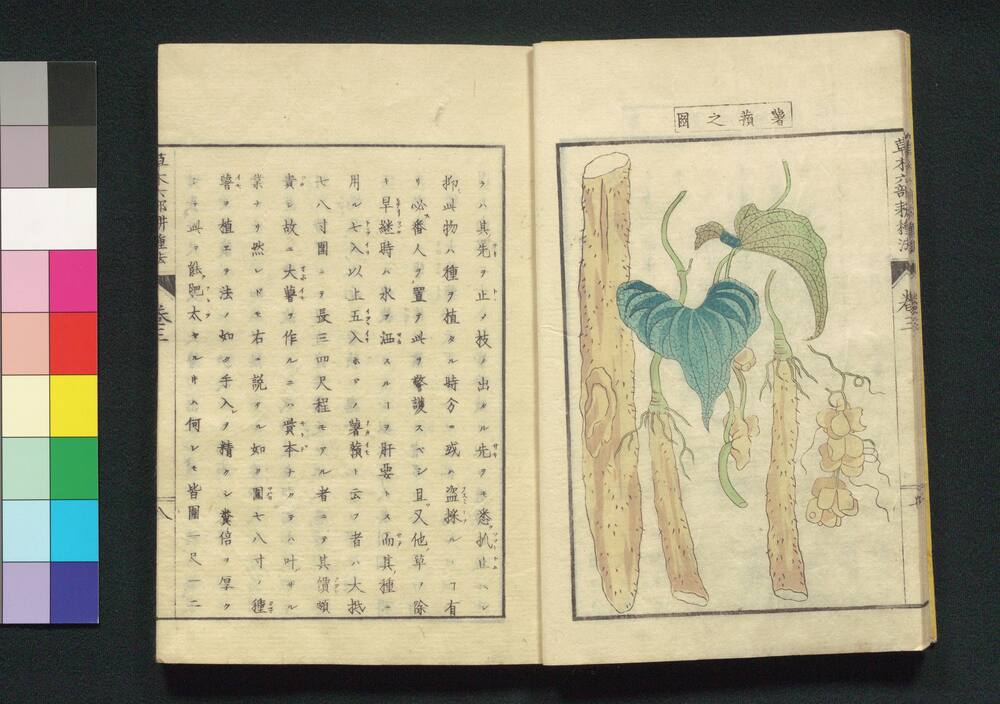 薯蕷之圖
草木六部耕種法
卷三
ラハ其先ヲ止メ枝ノ出ル先ヲモ悉扒止ベシ
抑此物ハ種ヲ植タル時分ニ或ハ盗採ルヿ有
リ必番人ヲ置テ此ヲ警護スベシ且又他草ヲ除
キ早継時ハ水ヲ洒スルヿヲ肝要トス而其種ニ
用ル七入以上五入ホドノ薯蕷ト云フ者ハ大抵
七八寸圍ニシテ長三四尺程モアル者ニシテ其價頗
貴シ故ニ大薯ヲ作ルニハ貲本ナクテハ叶ザル
業ナリ然レドモ右ニ説タル如ク圍七八寸ノ種
薯ヲ植エテ法ノ如ク手入ヲ精クシ糞倍ヲ厚ク
シテ此ヲ能肥太セシムルトキハ何レモ皆圍一尺一二
草木六部耕種法
卷三
八